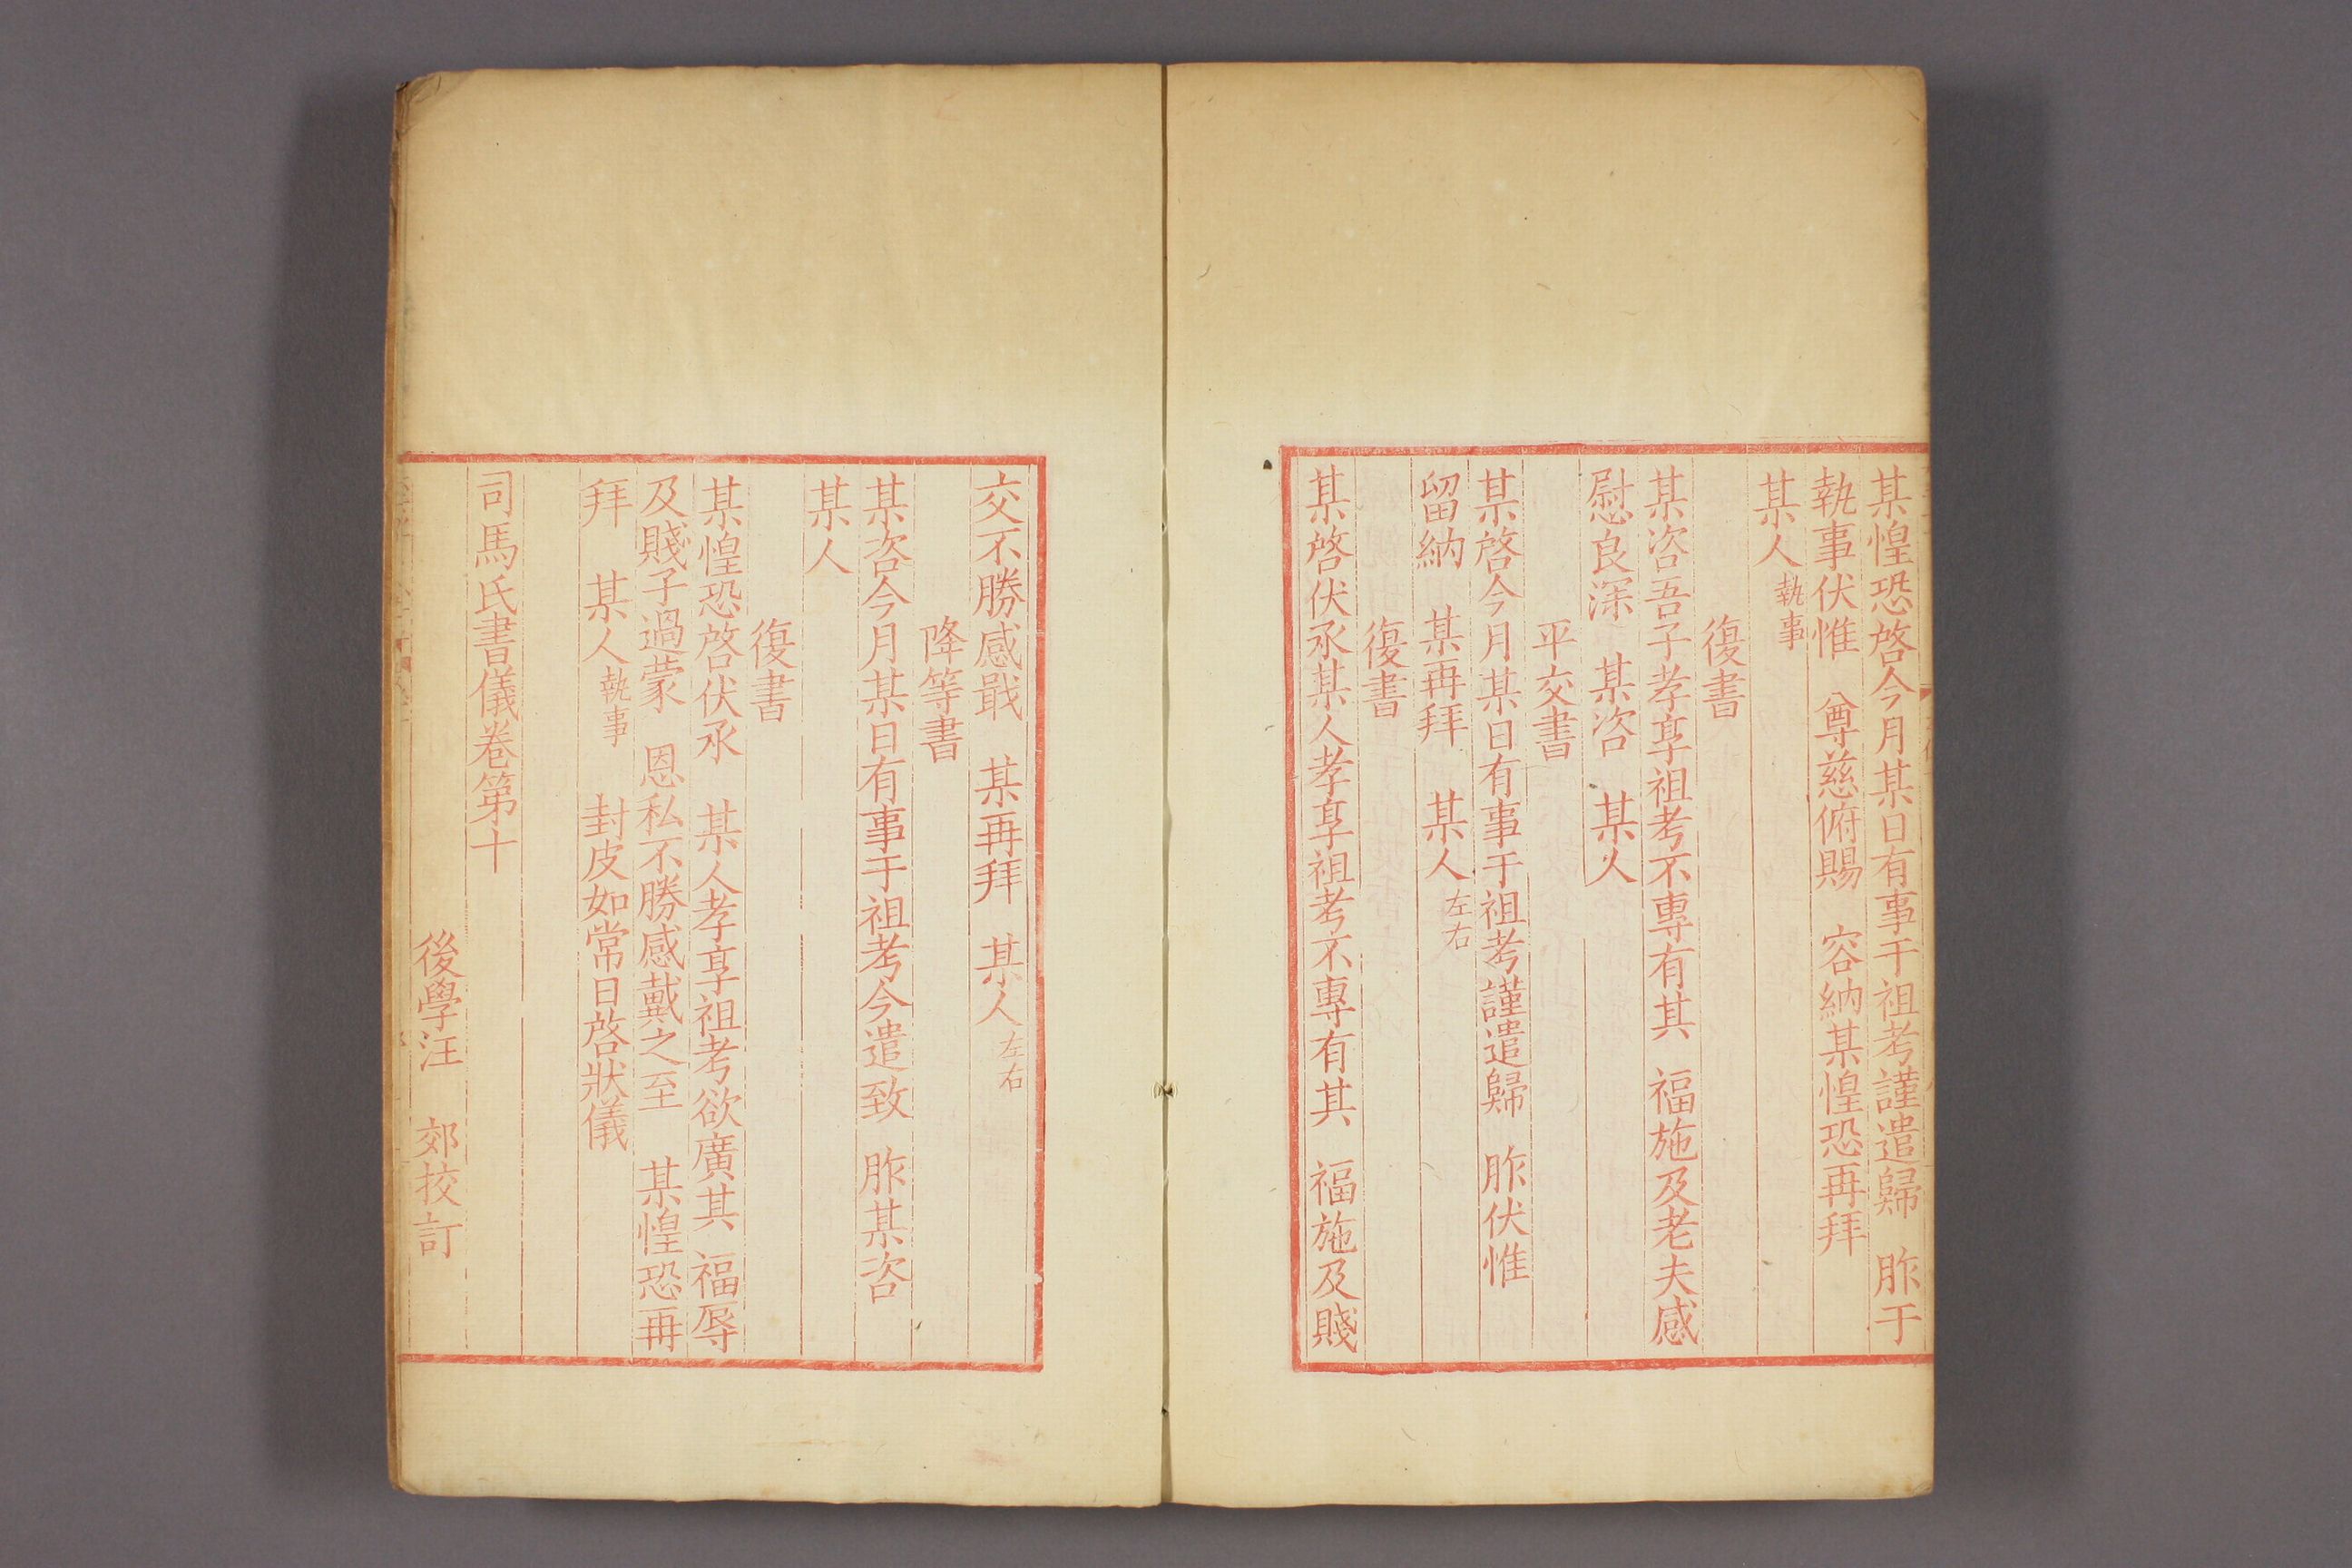 某惶恐啓今月某日有事于祖考謹遣歸　胙于
執事伏惟　尊慈俯賜　容納某惶恐再拜
某人執事
復書
某咨吾子孝享祖考不專有其　福施及老夫感
慰良深　某咨　某人
平交書
某啓今月某日有事于祖考謹遣歸　胙伏惟
留納　某再拜　某人左右
復書
某啓伏承某人孝享祖考不專有其　福施及賤
交不勝感戢　某再拜　某人左右
降等書
某咨今月某日有事于祖考今遣致　胙某咨
某人
復書
某惶恐啓伏承　某人孝享祖考欲廣其　福辱
及賤子過蒙　恩私不勝感戴之至　某惶恐再
拜　某人執事　封皮如常日啓狀儀
司馬氏書儀卷第十
後學汪　郊挍訂